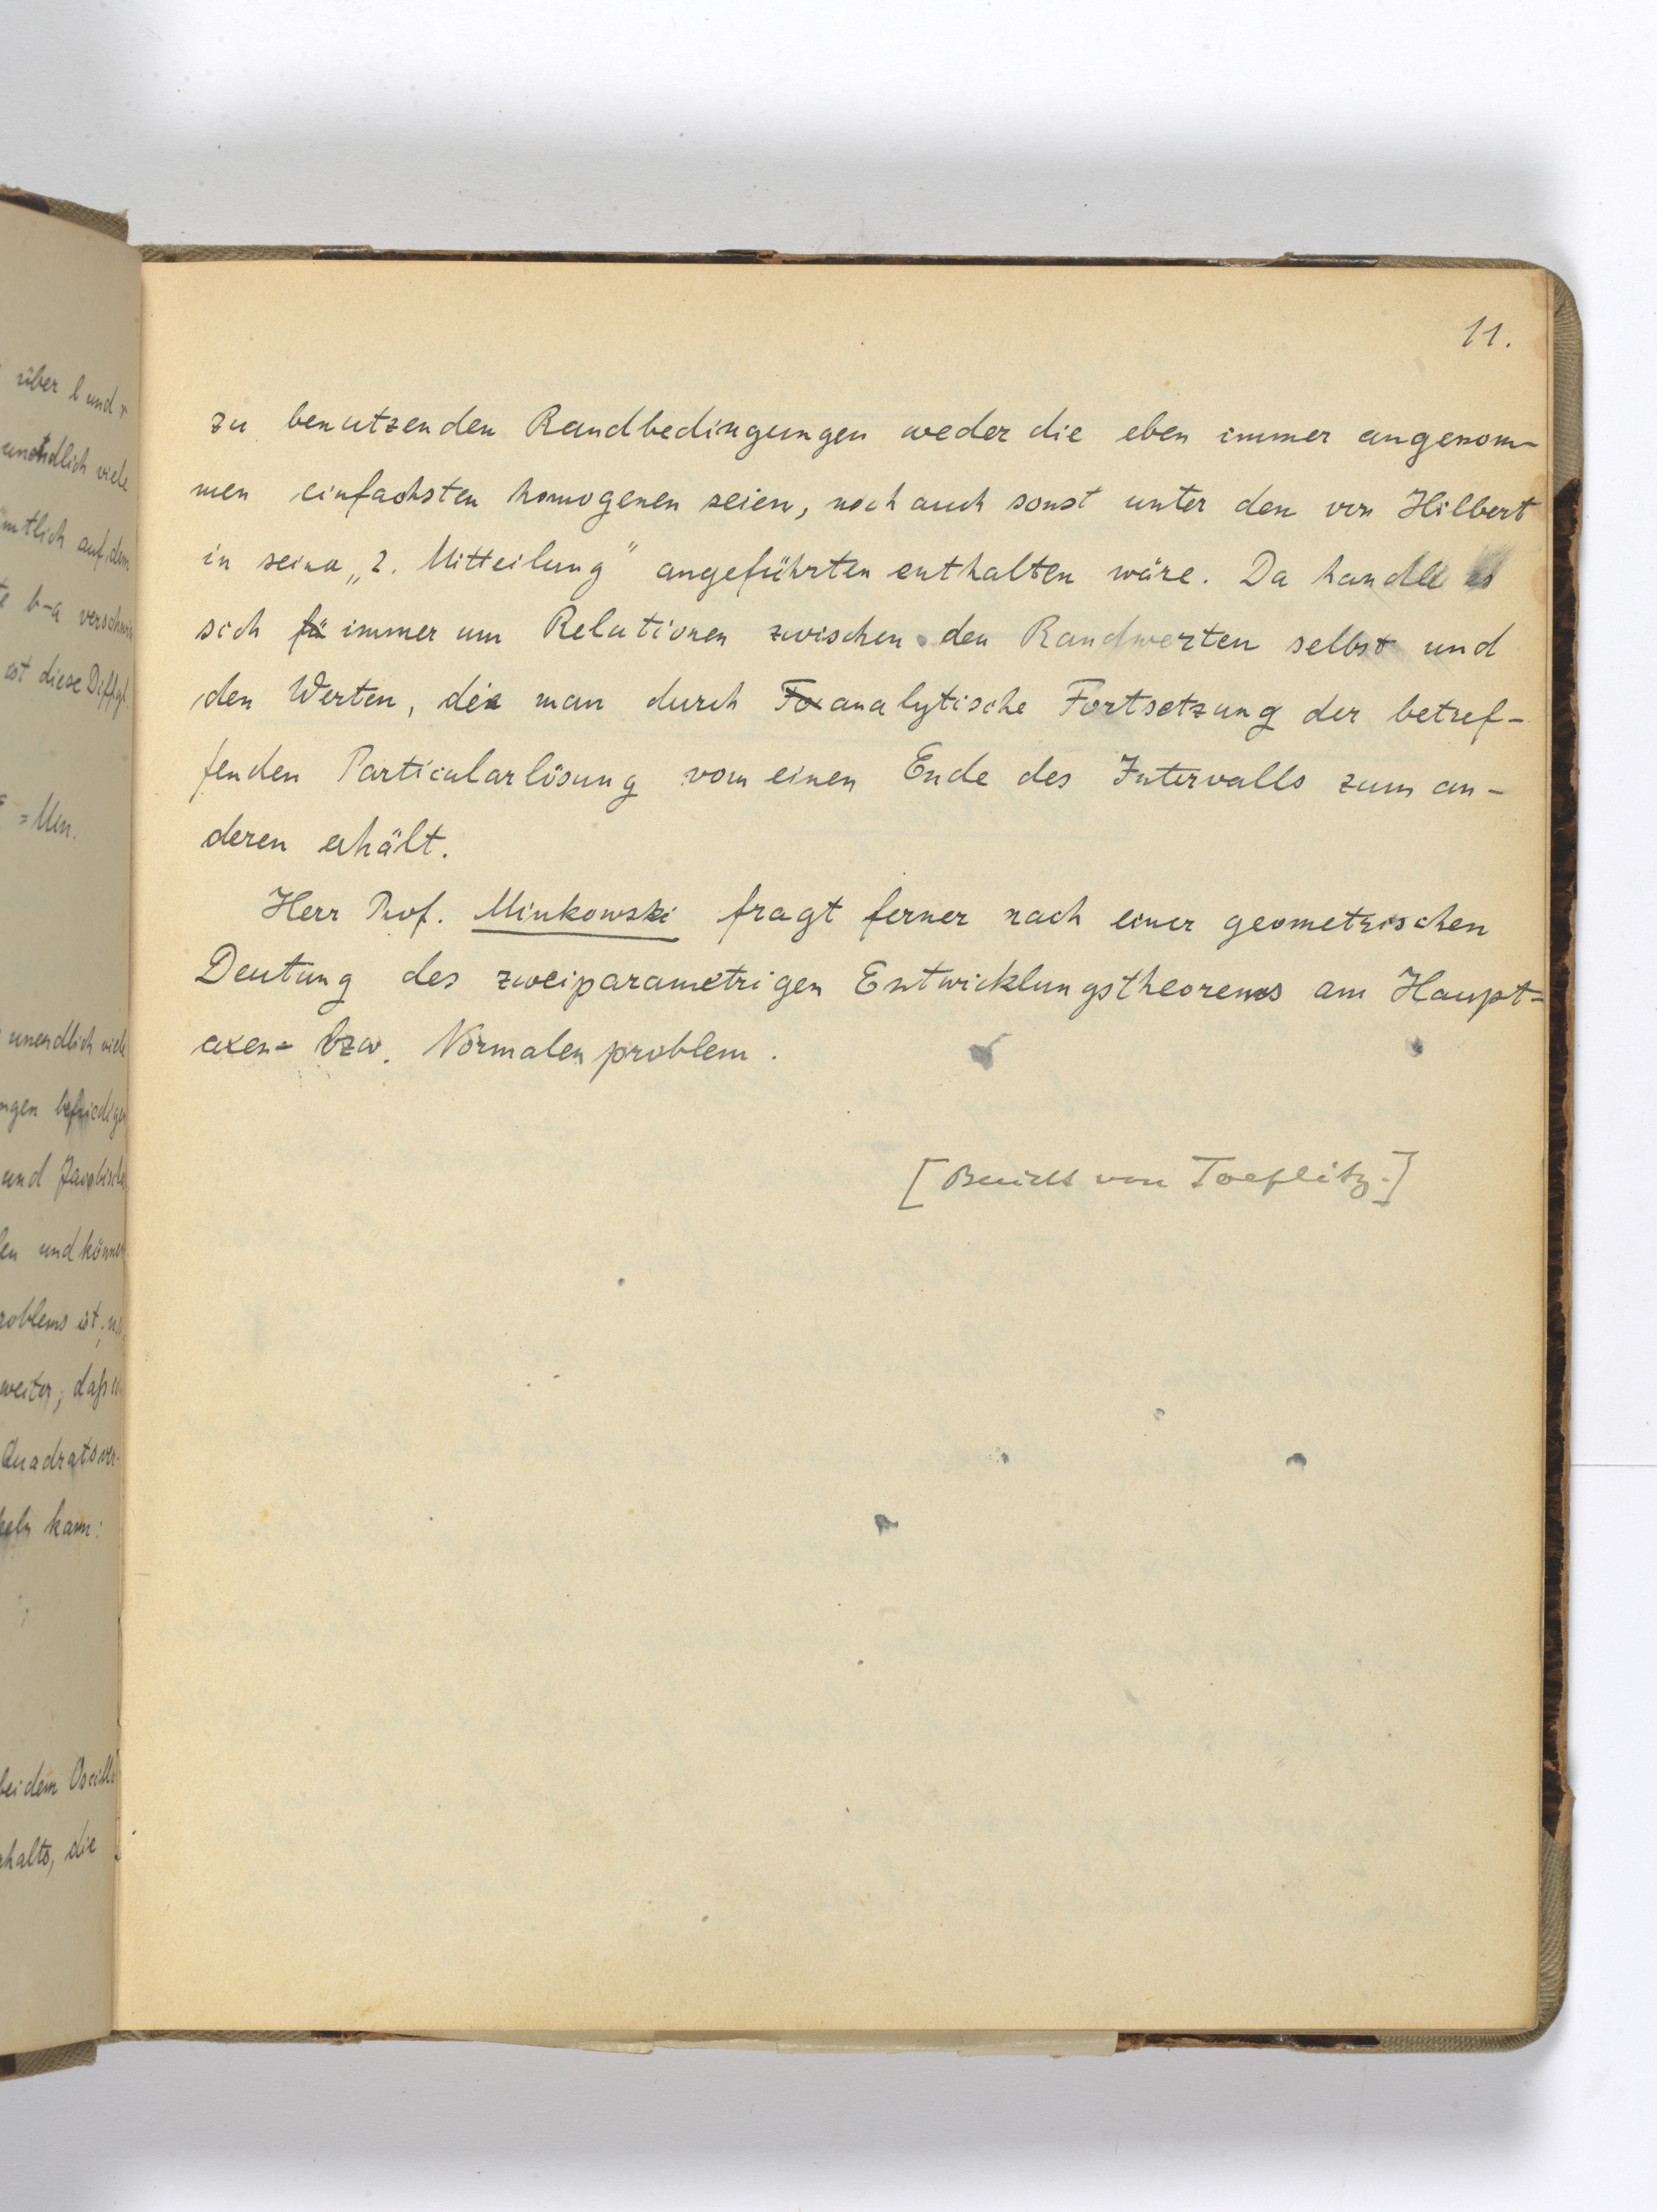 11.
zu benutzenden Randbedingungen weder die eben immer angenom-
men einfachsten homogenen seien, noch auch sonst unter den von Hilbert
in seiner „2. Mitteilung" angeführten enthalten wäre. Da handle es
sich fü immer um Relationen zwischen den Randwerten selbst und
den Werten, die man durch Fo analytische Fortsetzung der betref-
fenden Particularlösung vom einen Ende des Intervalls zum an-
deren erhält.
Herr Prof. Minkowski fragt ferner nach einer geometrischen
Deutung des zweiparametrigen Entwicklungstheorems am Haupt-
axen- bzw. Normalenproblem.
[Bericht von Toeplitz.]
über l und r
unendlich viele
auf dem
b-a
ist diese Diffgl.
= Min.
unendlich viele
und
und
ist,
weiter, daß
kann:
bei dem
die